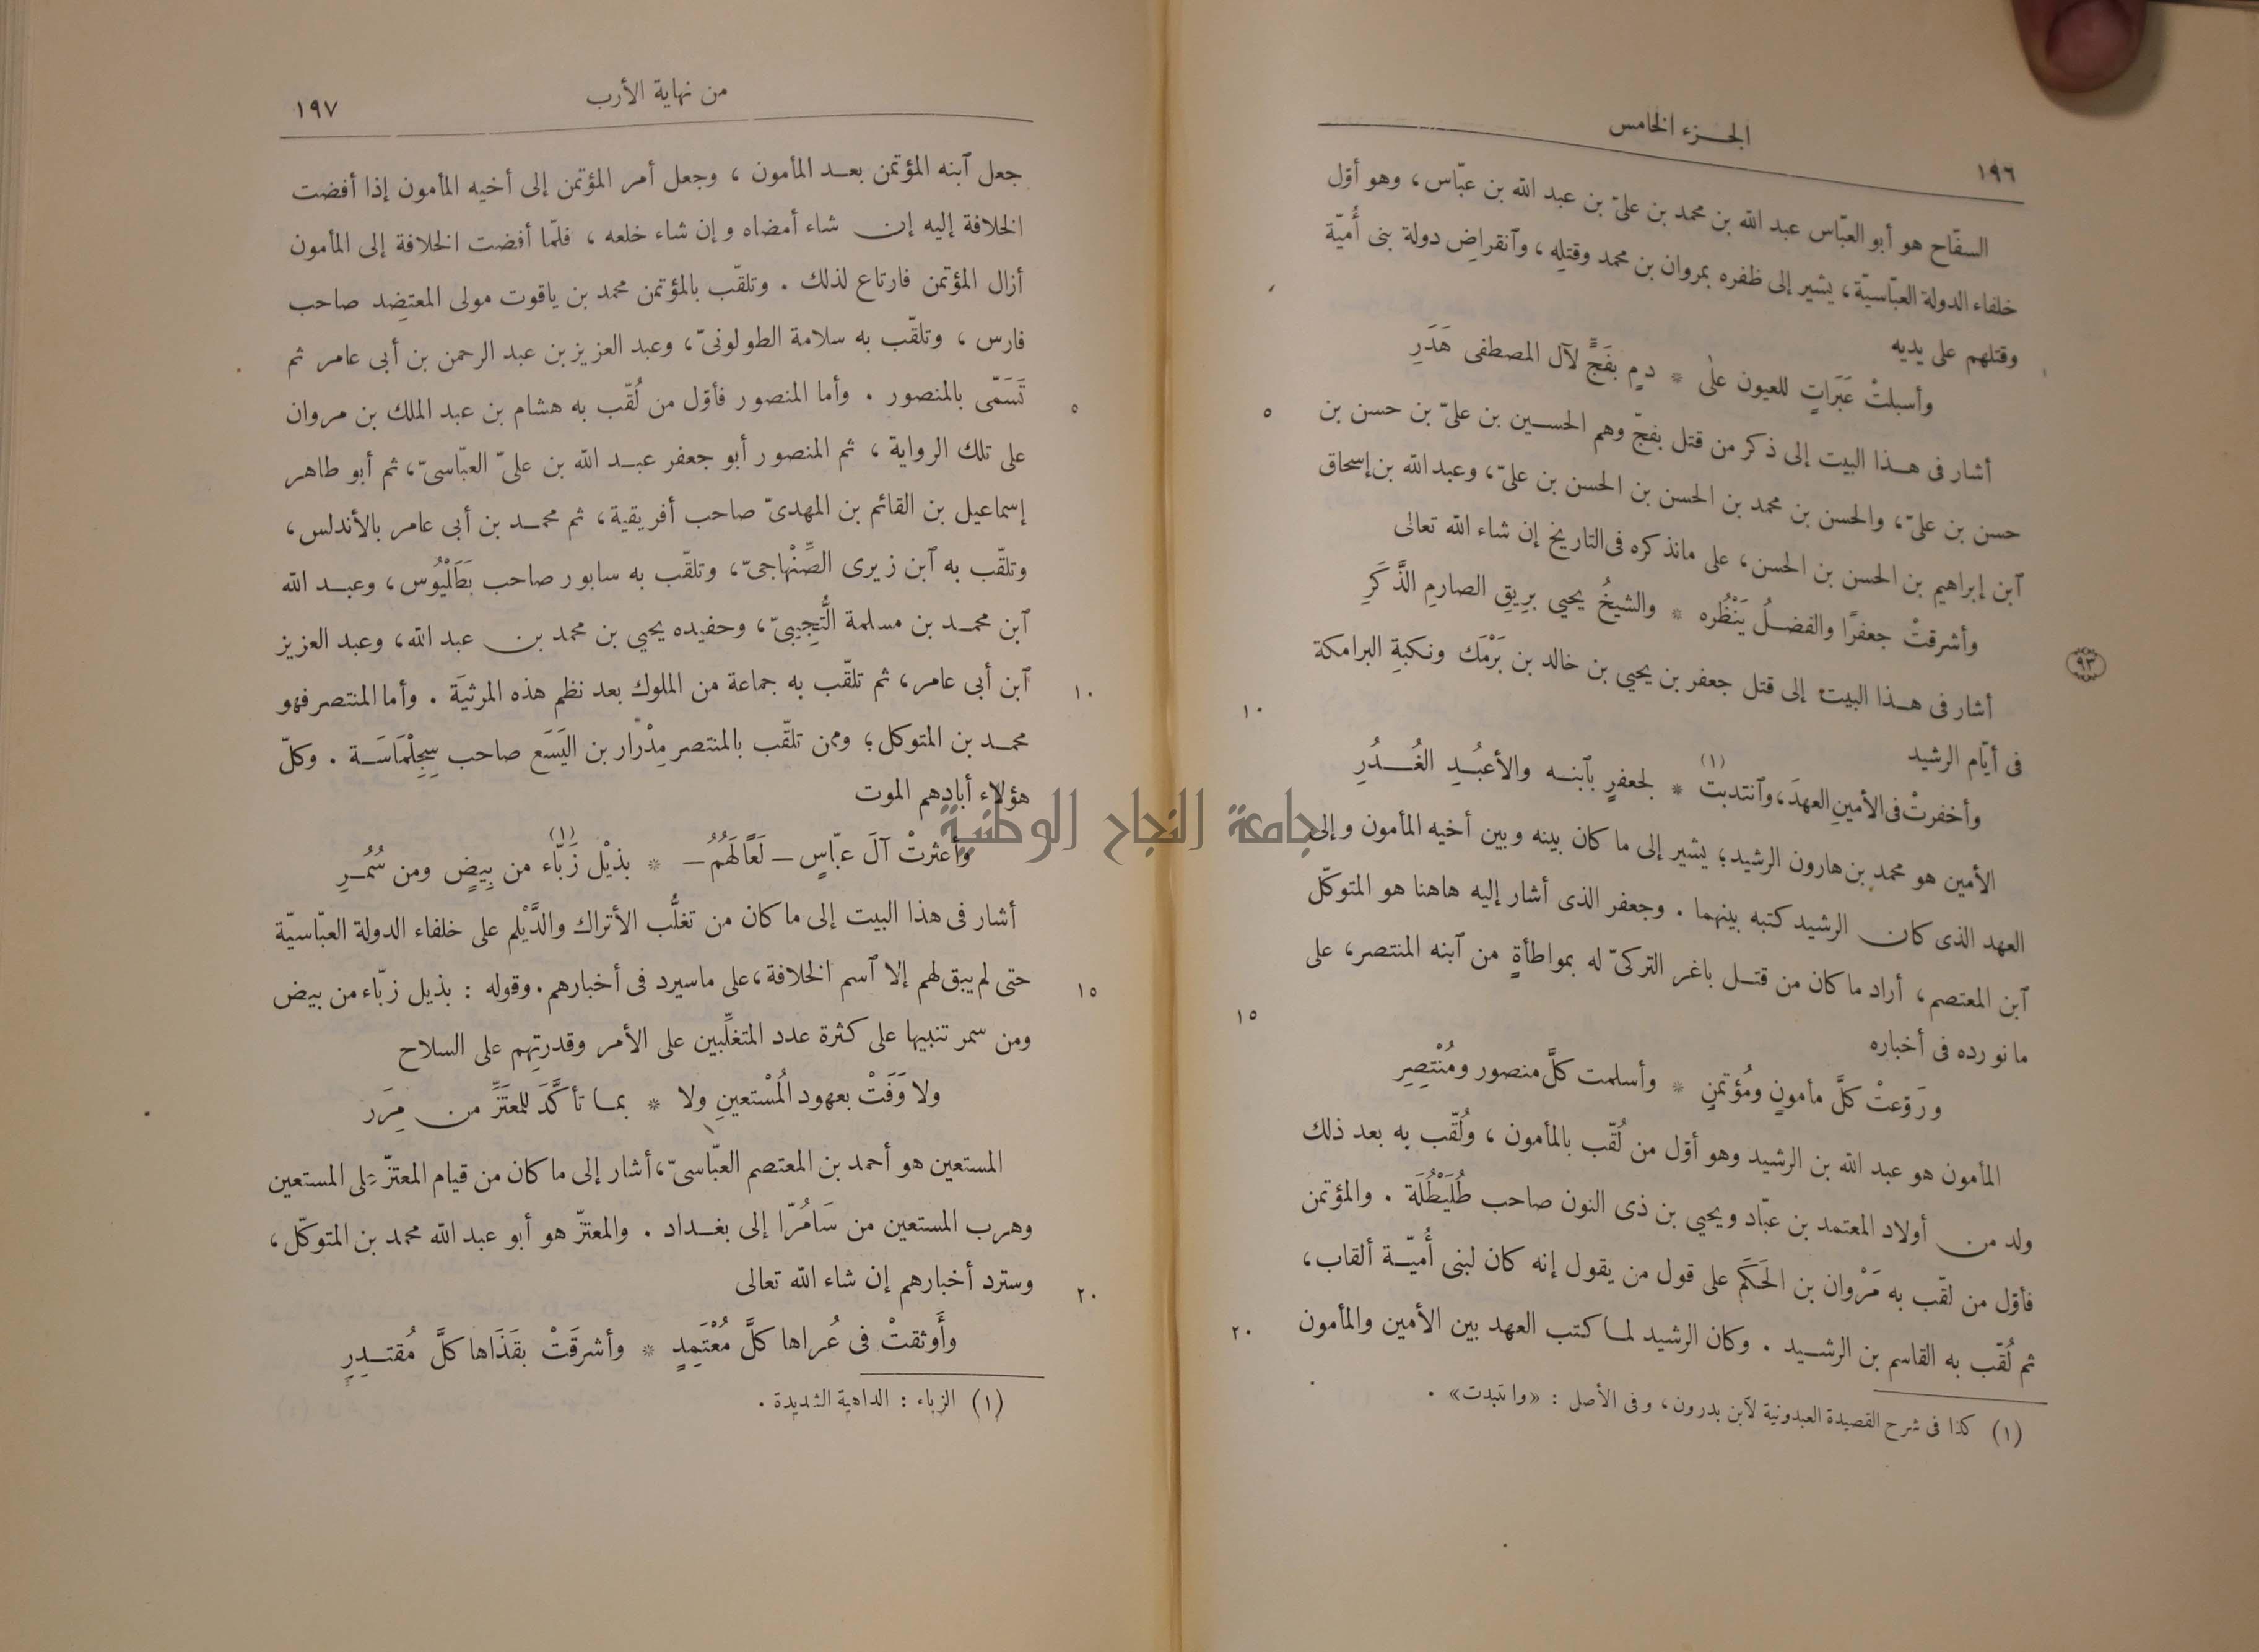 الجزء الخامس
١٩٦
السفّاح هو أبو العبّاس عبد الله بن محمد بن علىّ بن عبد الله بن عبّاس، وهو أوّل
خلفاء الدولة العبّاسيّة، يشير إلى ظفره بمروان بن محمد وقتلِه، وٱنقراضِ دولة بنى أُميّة
وقتلهم على يديه
وأسبلتْ عَبَرَاتٍ للعيون علٰى * دمٍ بفَجًّ لآل المصطفى هَدَرِ
٥
أشار فى هذا البيت إلى ذكر من قتل بفجّ وهم الحسين بن علىّ بن حسن بن
حسن بن علىّ، والحسن بن محمد بن الحسن بن الحسن بن علىّ، وعبد الله بن إسحاق
ٱبن إبراهيم بن الحسن بن الحسن، على مانذكره فى التاريخ إن شاء الله تعالى
وأشرقتْ جعفرًا والفضلُ يَنْظُره * والشيخُ يحيى برِيقِ الصارمِ الذَّكَرِ
٩٣
أشار فى هذا البيت إلى قتل جعفر بن يحيى بن خالد بن بَرْمَك ونكبةِ البرامكة
١٠
فى أيّام الرشيد
وأخفرتْ فى الأمينِ العهدَ، وٱنتدبت (١) * لجعفرٍ بٱبنه والأعبُدِ الغُدُرِ
الأمين هو محمد بن هارون الرشيد؛ يشير إلى ما كان بينه وبين أخيه المأمون وإلى
العهد الذى كان الرشيد كتبه بينهما . وجعفر الذى أشار إليه هاهنا هو المتوكّل
ٱبن المعتصم، أراد ما كان من قتل باغر التركىّ له بمواطأةٍ من ٱبنه المنتصر، على
١٥
ما نورده فى أخباره
ورَوّعتْ كلَّ مأمونٍ ومُؤتمنٍ * وأسلمت كلَّ منصور ومُنْتِصِرِ
المأمون هو عبد الله بن الرشيد وهو أوّل من لُقّب بالمأمون، ولُقّب به بعد ذلك
ولد من أولاد المعتمد بن عبّاد ويحيى بن ذى النون صاحب طُلَيْطُلَة . والمؤتمن
فأوّل من لقّب به مَرْوان بن الحَكَم على قول من يقول إنه كان لبنى أُميّة ألقاب،
ثم لُقّب به القاسم بن الرشيد . وكان الرشيد لما كتب العهد بين الأمين والمأمون
٢٠
(١) كذا فى شرح القصيدة العبدونية لآبن بدرون، وفى الأصل : «وانتبدت» .
من نهاية الأرب
١٩٧
جعل ٱبنه المؤتمن بعد المأمون، وجعل أمر المؤتمن إلى أخيه المأمون إذا أفضت
الخلافة إليه إن شاء أمضاه وإن شاء خلعه، فلمّا أفضت الخلافة إلى المأمون
أزال المؤتمن فارتاع لذلك . وتلقّب بالمؤتمن محمد بن ياقوت مولى المعتضِد صاحب
فارس، وتلقّب به سلامة الطولونىّ، وعبد العزيز بن عبد الرحمن بن أبى عامر ثم
تَسَمّى بالمنصور . وأما المنصور فأوّل من لُقّب به هشام بن عبد الملك بن مروان
٥
على تلك الرواية، ثم المنصور أبو جعفر عبد الله بن علىّ العبّاسىّ، ثم أبو طاهر
إسماعيل بن القائم بن المهدىّ صاحب أفريقية، ثم محمد بن أبى عامر بالأندلس،
وتلقّب به ٱبن زيرى الصِّنْهاجىّ، وتلقّب به سابور صاحب بَطَلْيُوس، وعبد الله
ٱبن محمد بن مسلمة التُّجِيبىّ، وحفيده يحيى بن محمد بن عبد الله، وعبد العزيز
ٱبن أبى عامر، ثم تلقّب به جماعة من الملوك بعد نظم هذه المرثيَة . وأما المنتصر فهو
١٠
محمد بن المتوكل؛ وممن تلقّب بالمنتصر مِدْرار بن اليَسَع صاحب سِجِلْمَاسَة . وكلّ
هؤلاء أبادهم الموت
وأعثرتْ آلَ عبّاسٍ — لَعًا لَهُمُ — * بذيْل زَبّاء (١) من بِيضٍ ومن سُمُرِ
أشار فى هذا البيت إلى ما كان من تغلُّب الأتراك والدَّيْلم على خلفاء الدولة العبّاسيّة
حتى لم يبق لهم إلا ٱسم الخلافة، على ماسيرد فى أخبارهم. وقوله : بذيل زبّاء من بيض
١٥
ومن سمر تنبيها على كثرة عدد المتغلِّبين على الأمر وقدرتِهم على السلاح
ولا وَفَتْ بعهود المُسْتعينِ ولا * بما تأكّدَ للمعتَزِّ من مِرَر
المستعين هو أحمد بن المعتصم العبّاسىّ، أشار إلى ما كان من قيام المعتزّ على المستعين
وهرب المستعين من سَامُرّا إلى بغداد . والمعتزّ هو أبو عبد الله محمد بن المتوكّل،
وسترد أخبارهم إن شاء الله تعالى
٢٠
وأَوثقتْ فى عُراها كلَّ مُعْتَمِدٍ * وأشرقَتْ بقَذَاها كلَّ مُقتدِرِ
(١) الزباء : الداهية الشديدة .
جامعة النجاح الوطنية